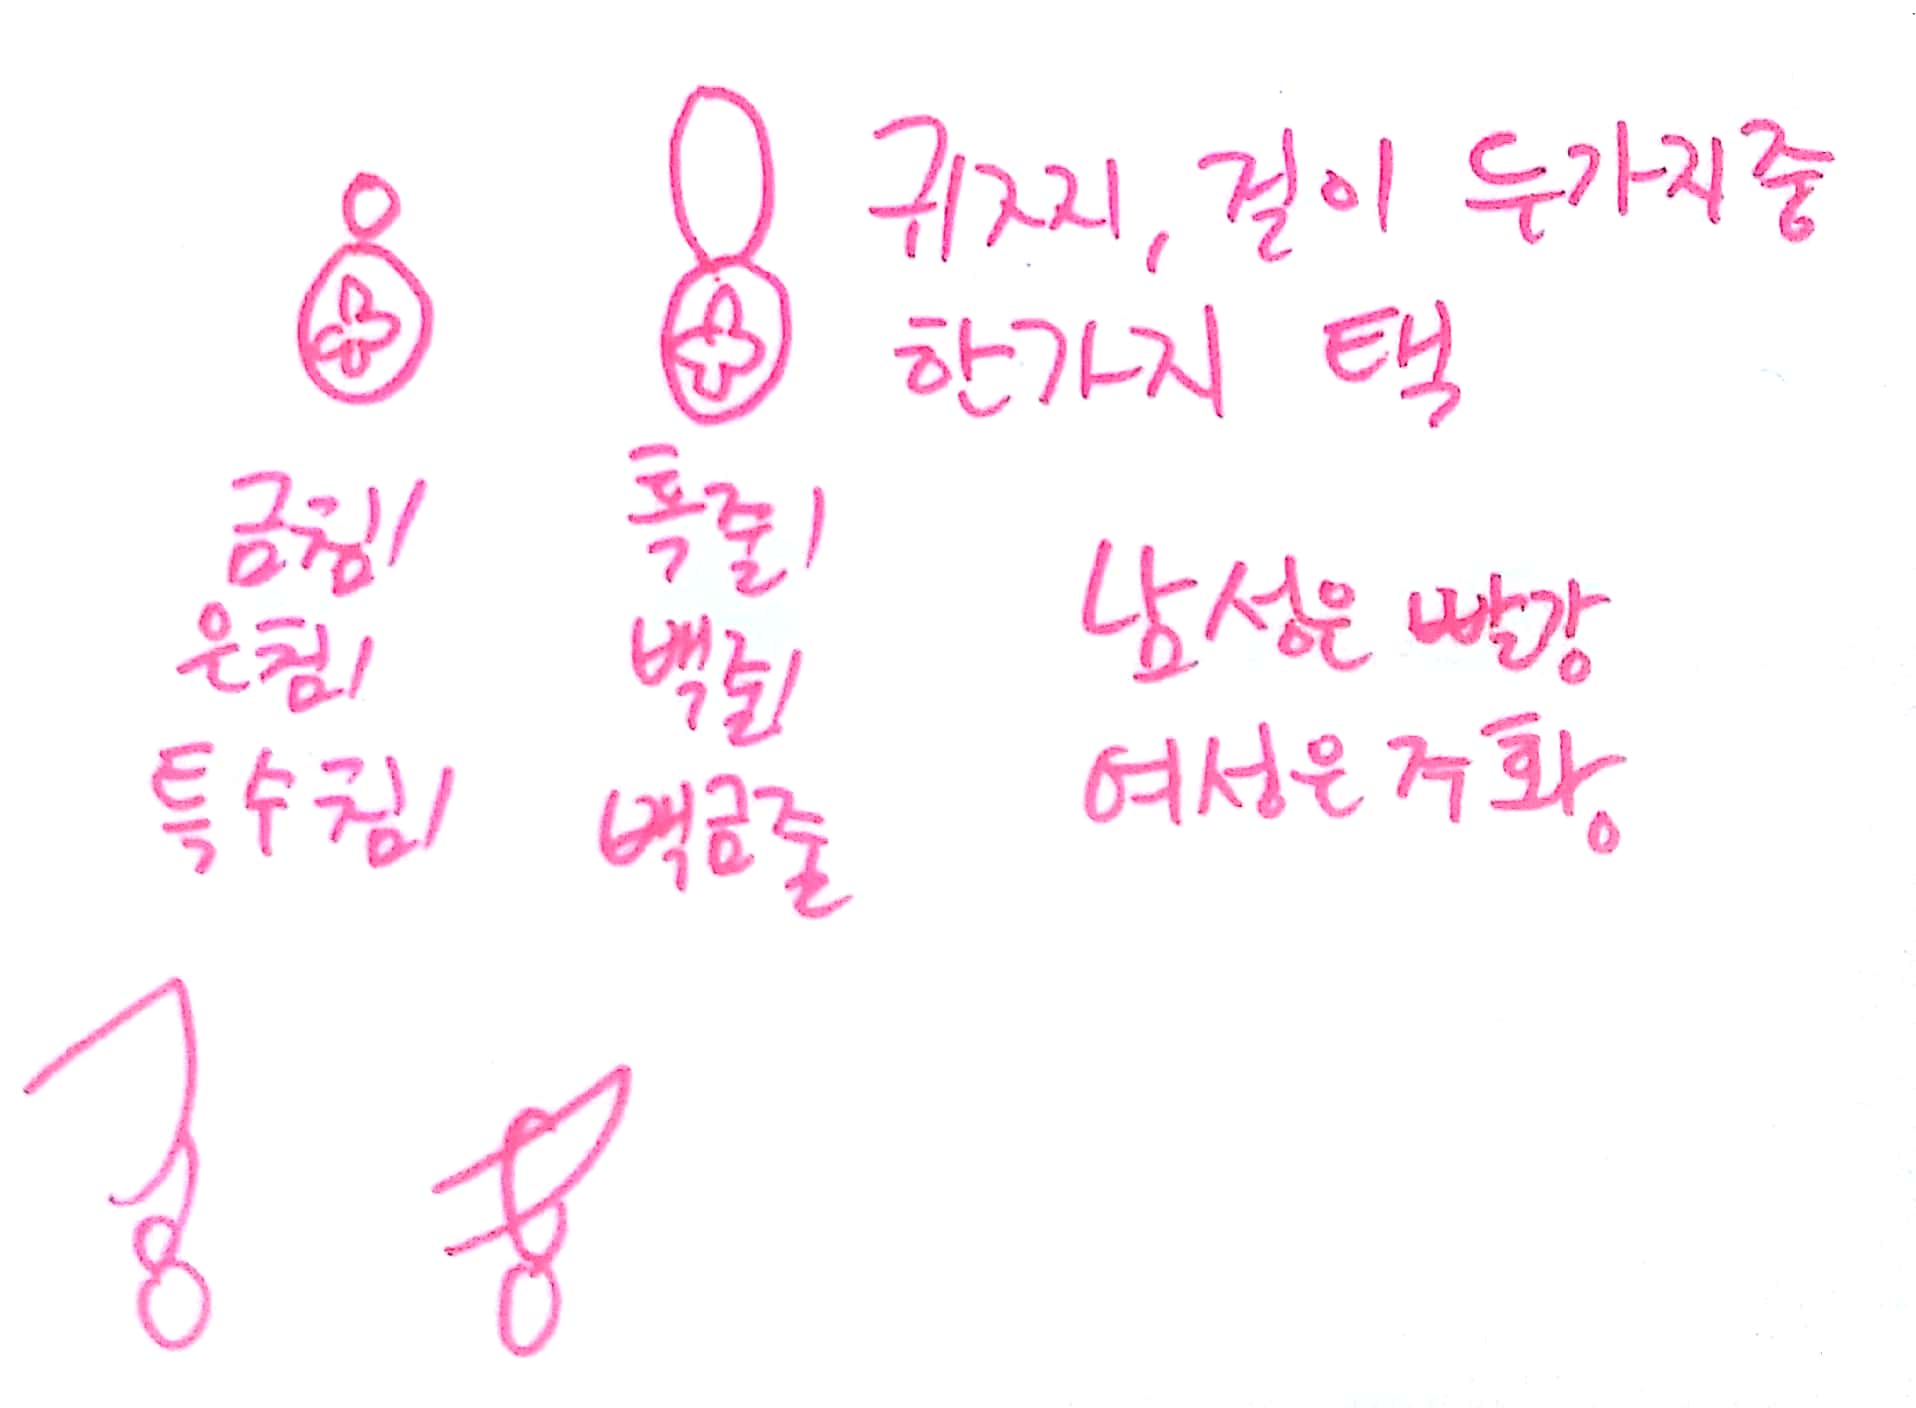 귀찌, 걸이 두가지중
한가지 택
금침/
은침/
특수침/
폭줄/
백줄/
백금줄
남성은 빨강
여성은 주황